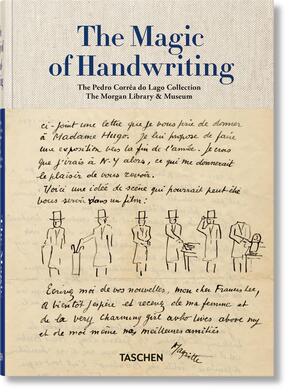 The Magic
of Handwriting
The Pedro Corrêa do Lago Collection
The Morgan Library & Museum
ci-joint une lettre que je vous prie de donner
à Madame Hugo. Je lui propose de faire
une exposition vers la fin de l'année. Je crois
que j'irais à N.Y alors, ce qui me donnerait
le plaisir de vous revoir.
Voici une idée de scène qui pourrait peut être
vous servir dans un film:
Ecrivez moi de vos nouvelles, mon cher
A bientôt j'espère et recevez de ma femme et
de la very charming girl who lives above my
et de moi même nos meilleures amitiés
Magritte
TASCHEN